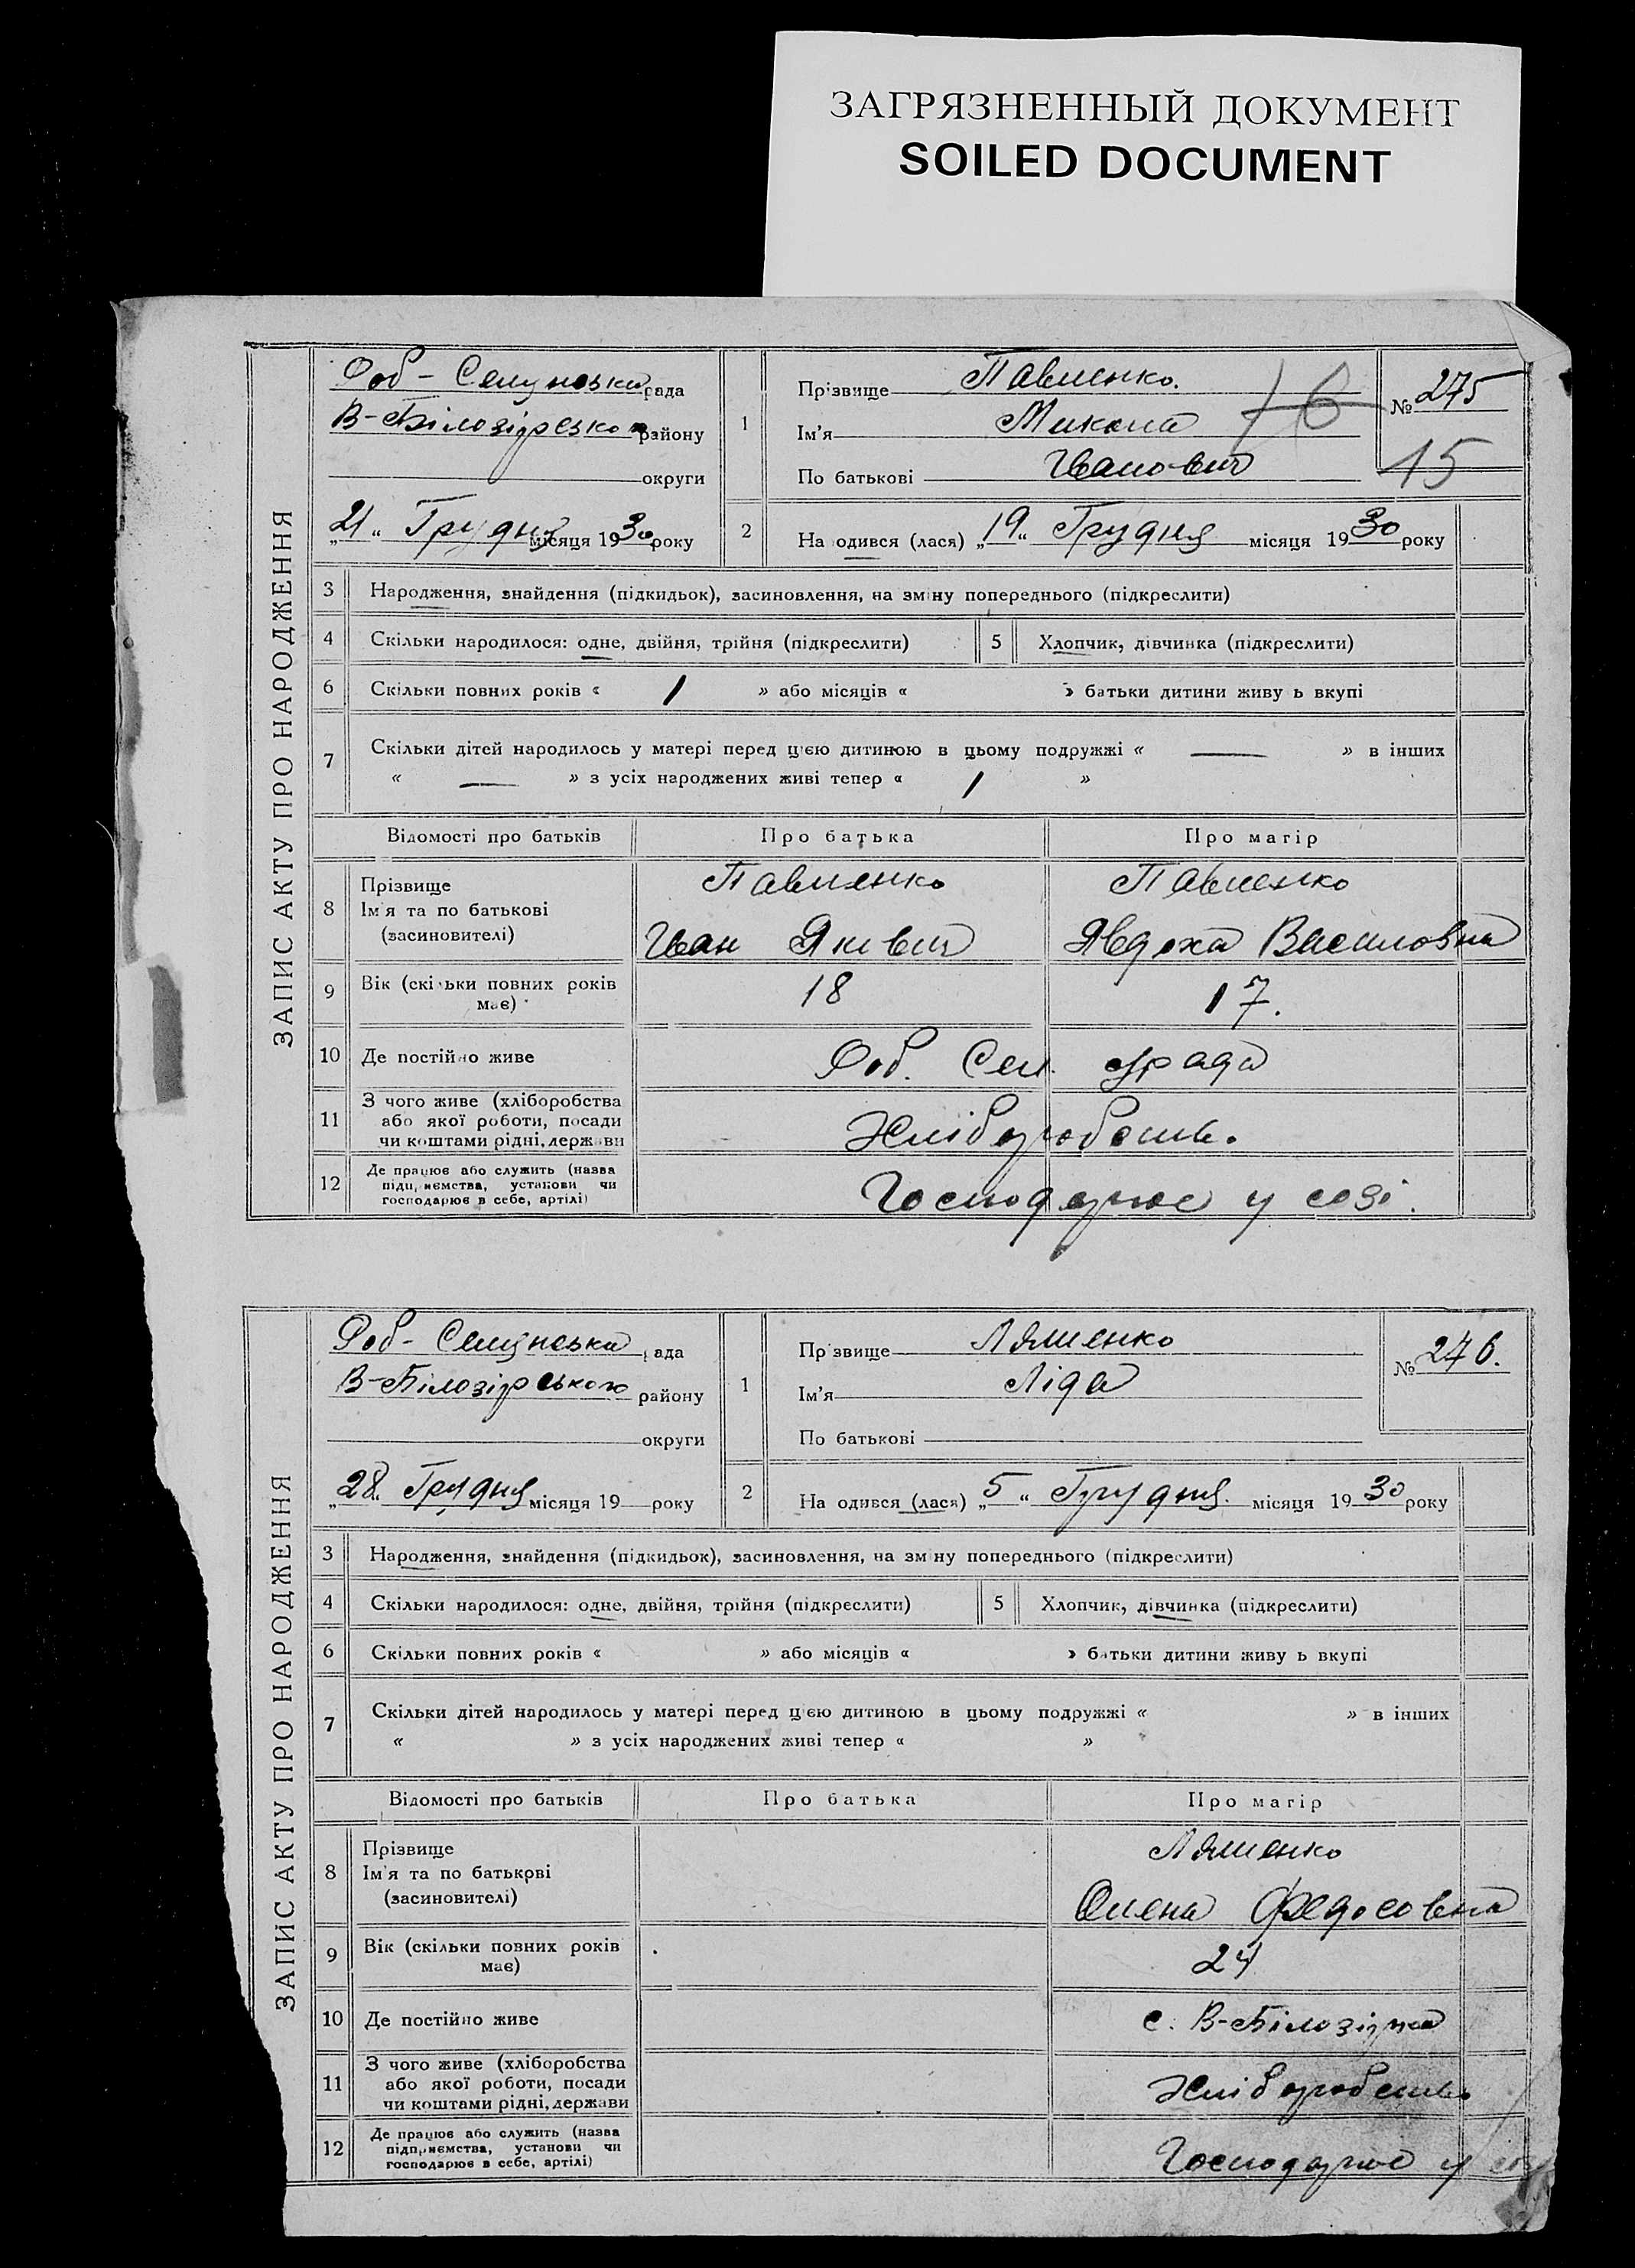 ЗАГРЯЗНЕННЫЙ ДОКУМЕНТ
SOILED DOCUMENT
ЗАПИС АКТУ ПРО НАРОДЖЕННЯ
Роб- Селищнська рада
В-Білозірського району
округи
„21“ Грудня місяця 1930 року
1
Прізвище Павленко.
Ім'я Микола
По батькові Іванович
16
№ 275
15
2
Народився (лася) „19“ Грудня місяця 1930 року
3 Народження, знайдення (підкидьок), засиновлення, на зміну попереднього (підкреслити)
4 Скільки народилося: одне, двійня, трійня (підкреслити) 5 Хлопчик, дівчинка (підкреслити)
6 Скільки повних років « 1 » або місяців « » батьки дитини живуть вкупі
7 Скільки дітей народилось у матері перед цією дитиною в цьому подружжі « — » в інших
« — » з усіх народжених живі тепер « 1 »
Відомості про батьків Про батька Про матір
8 Прізвище
Ім'я та по батькові
(засиновителі)
Павленко Павленко
Іван Якович Явдоха Василовна
9 Вік (скільки повних років має) 18 17.
10 Де постійно живе Роб. Сел. рада
11 З чого живе (хліборобства
або якої роботи, посади
чи коштами рідні, держави
Хліборобств.
12 Де працює або служить (назва
підприємства, установи чи
господарює в себе, артілі)
Господарює у созі.
ЗАПИС АКТУ ПРО НАРОДЖЕННЯ
Роб- Селищнська рада
В-Білозірського району
округи
„28“ Грудня місяця 19 року
1
Прізвище Ляшенко
Ім'я Ліда
По батькові
№ 276.
2
Народився (лася) „5“ Грудня. місяця 1930 року
3 Народження, знайдення (підкидьок), засиновлення, на зміну попереднього (підкреслити)
4 Скільки народилося: одне, двійня, трійня (підкреслити) 5 Хлопчик, дівчинка (підкреслити)
6 Скільки повних років « » або місяців « » батьки дитини живуть вкупі
7 Скільки дітей народилось у матері перед цією дитиною в цьому подружжі « » в інших
« » з усіх народжених живі тепер « »
Відомості про батьків Про батька Про матір
8 Прізвище
Ім'я та по батькові
(засиновителі)
Ляшенко
Олена Федосовна
9 Вік (скільки повних років має) 24
10 Де постійно живе с. В-Білозірка
11 З чого живе (хліборобства
або якої роботи, посади
чи коштами рідні, держави
Хліборобство
12 Де працює або служить (назва
підприємства, установи чи
господарює в себе, артілі)
Господарює у